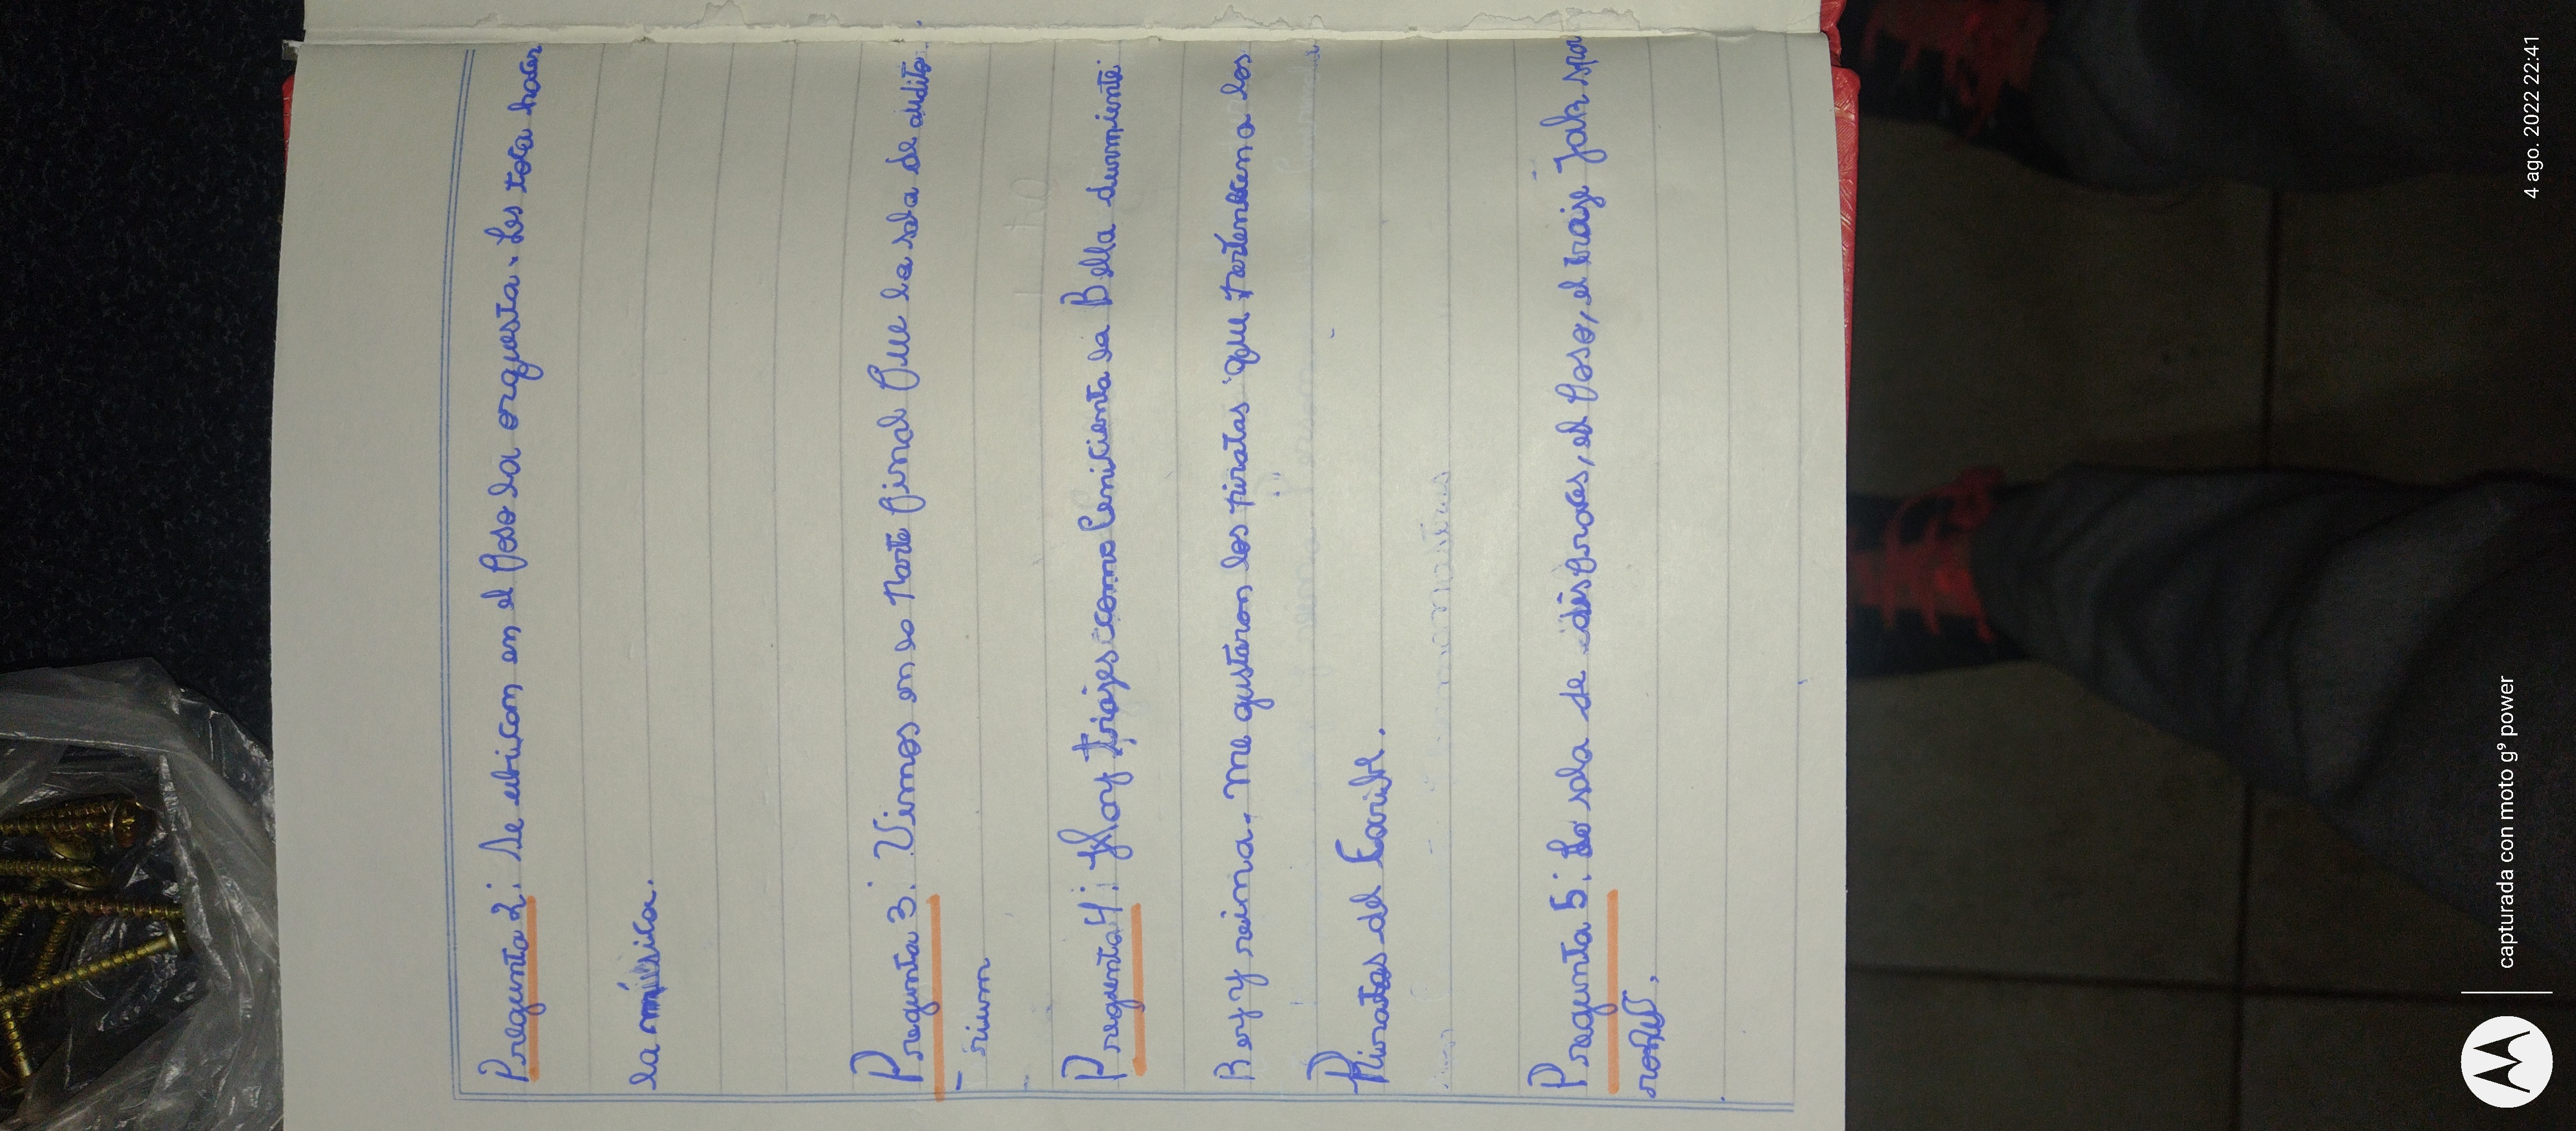 Pregunta 2: Se ubican en el foso la orquesta. Les toca hacer
la música.
Pregunta 3: Vimos en la Parte final fue la sala de audito-
-rium
Pregunta 4: Hay trajes como Cenicienta la Bella durmiente
Rey y reina. Me gustaron los piratas que pertenecen a los
Piratas del Caribe.
Pregunta 5: La sala de disfraces, el foso, el traje Jak spa
ronw.
4 ago. 2022 22:41
capturada con moto g⁹ power